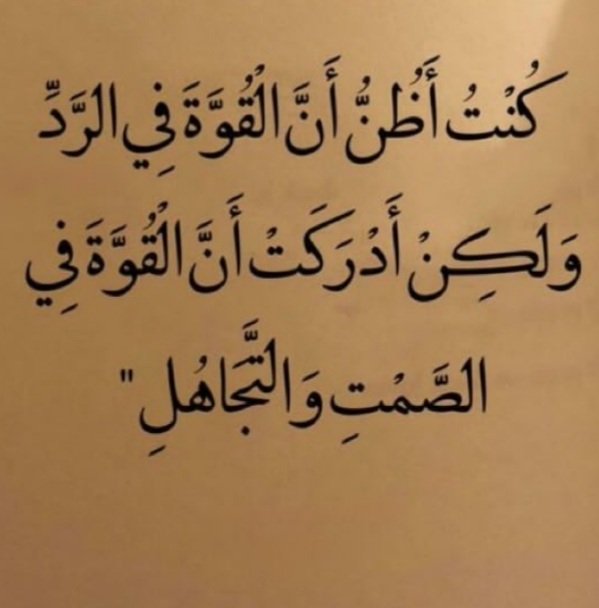 كُنْتُ أَظُنُّ أَنَّ الْقُوَّةَ فِي الرَّدِّ
وَلَكِنْ أَدْرَكَتُ أَنَّ الْقُوَّةَ فِي
الصَّمْتِ وَالتَّجَاهُلِ"